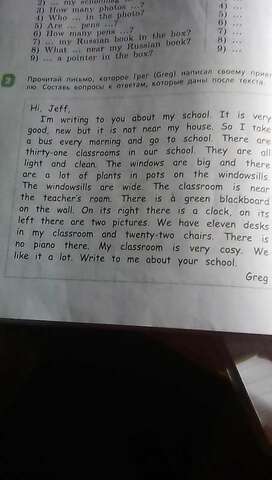 2) ... my
3) How many photos ...?
4) Who ... in the photo?
5) Are ... pens ...?
6) How many pens ...?
7) ... my Russian book in the box?
8) What ... near my Russian book?
9) ... a pointer in the box?
4) ...
5) ...
6) ...
7) ...
8) ...
9) ...
2 Прочитай письмо, которое Грег (Greg) написал своему
лю. Составь вопросы к ответам, которые даны после текста.
Hi, Jeff,
I'm writing to you about my school. It is very
good, new but it is not near my house. So I take
a bus every morning and go to school. There are
thirty-one classrooms in our school. They are all
light and clean. The windows are big and there
are a lot of plants in pots on the windowsills.
The windowsills are wide. The classroom is near
the teacher's room. There is a green blackboard
on the wall. On its right there is a clock, on its
left there are two pictures. We have eleven desks
in my classroom and twenty-two chairs. There is
no piano there. My classroom is very cosy. We
like it a lot. Write to me about your school.
Greg